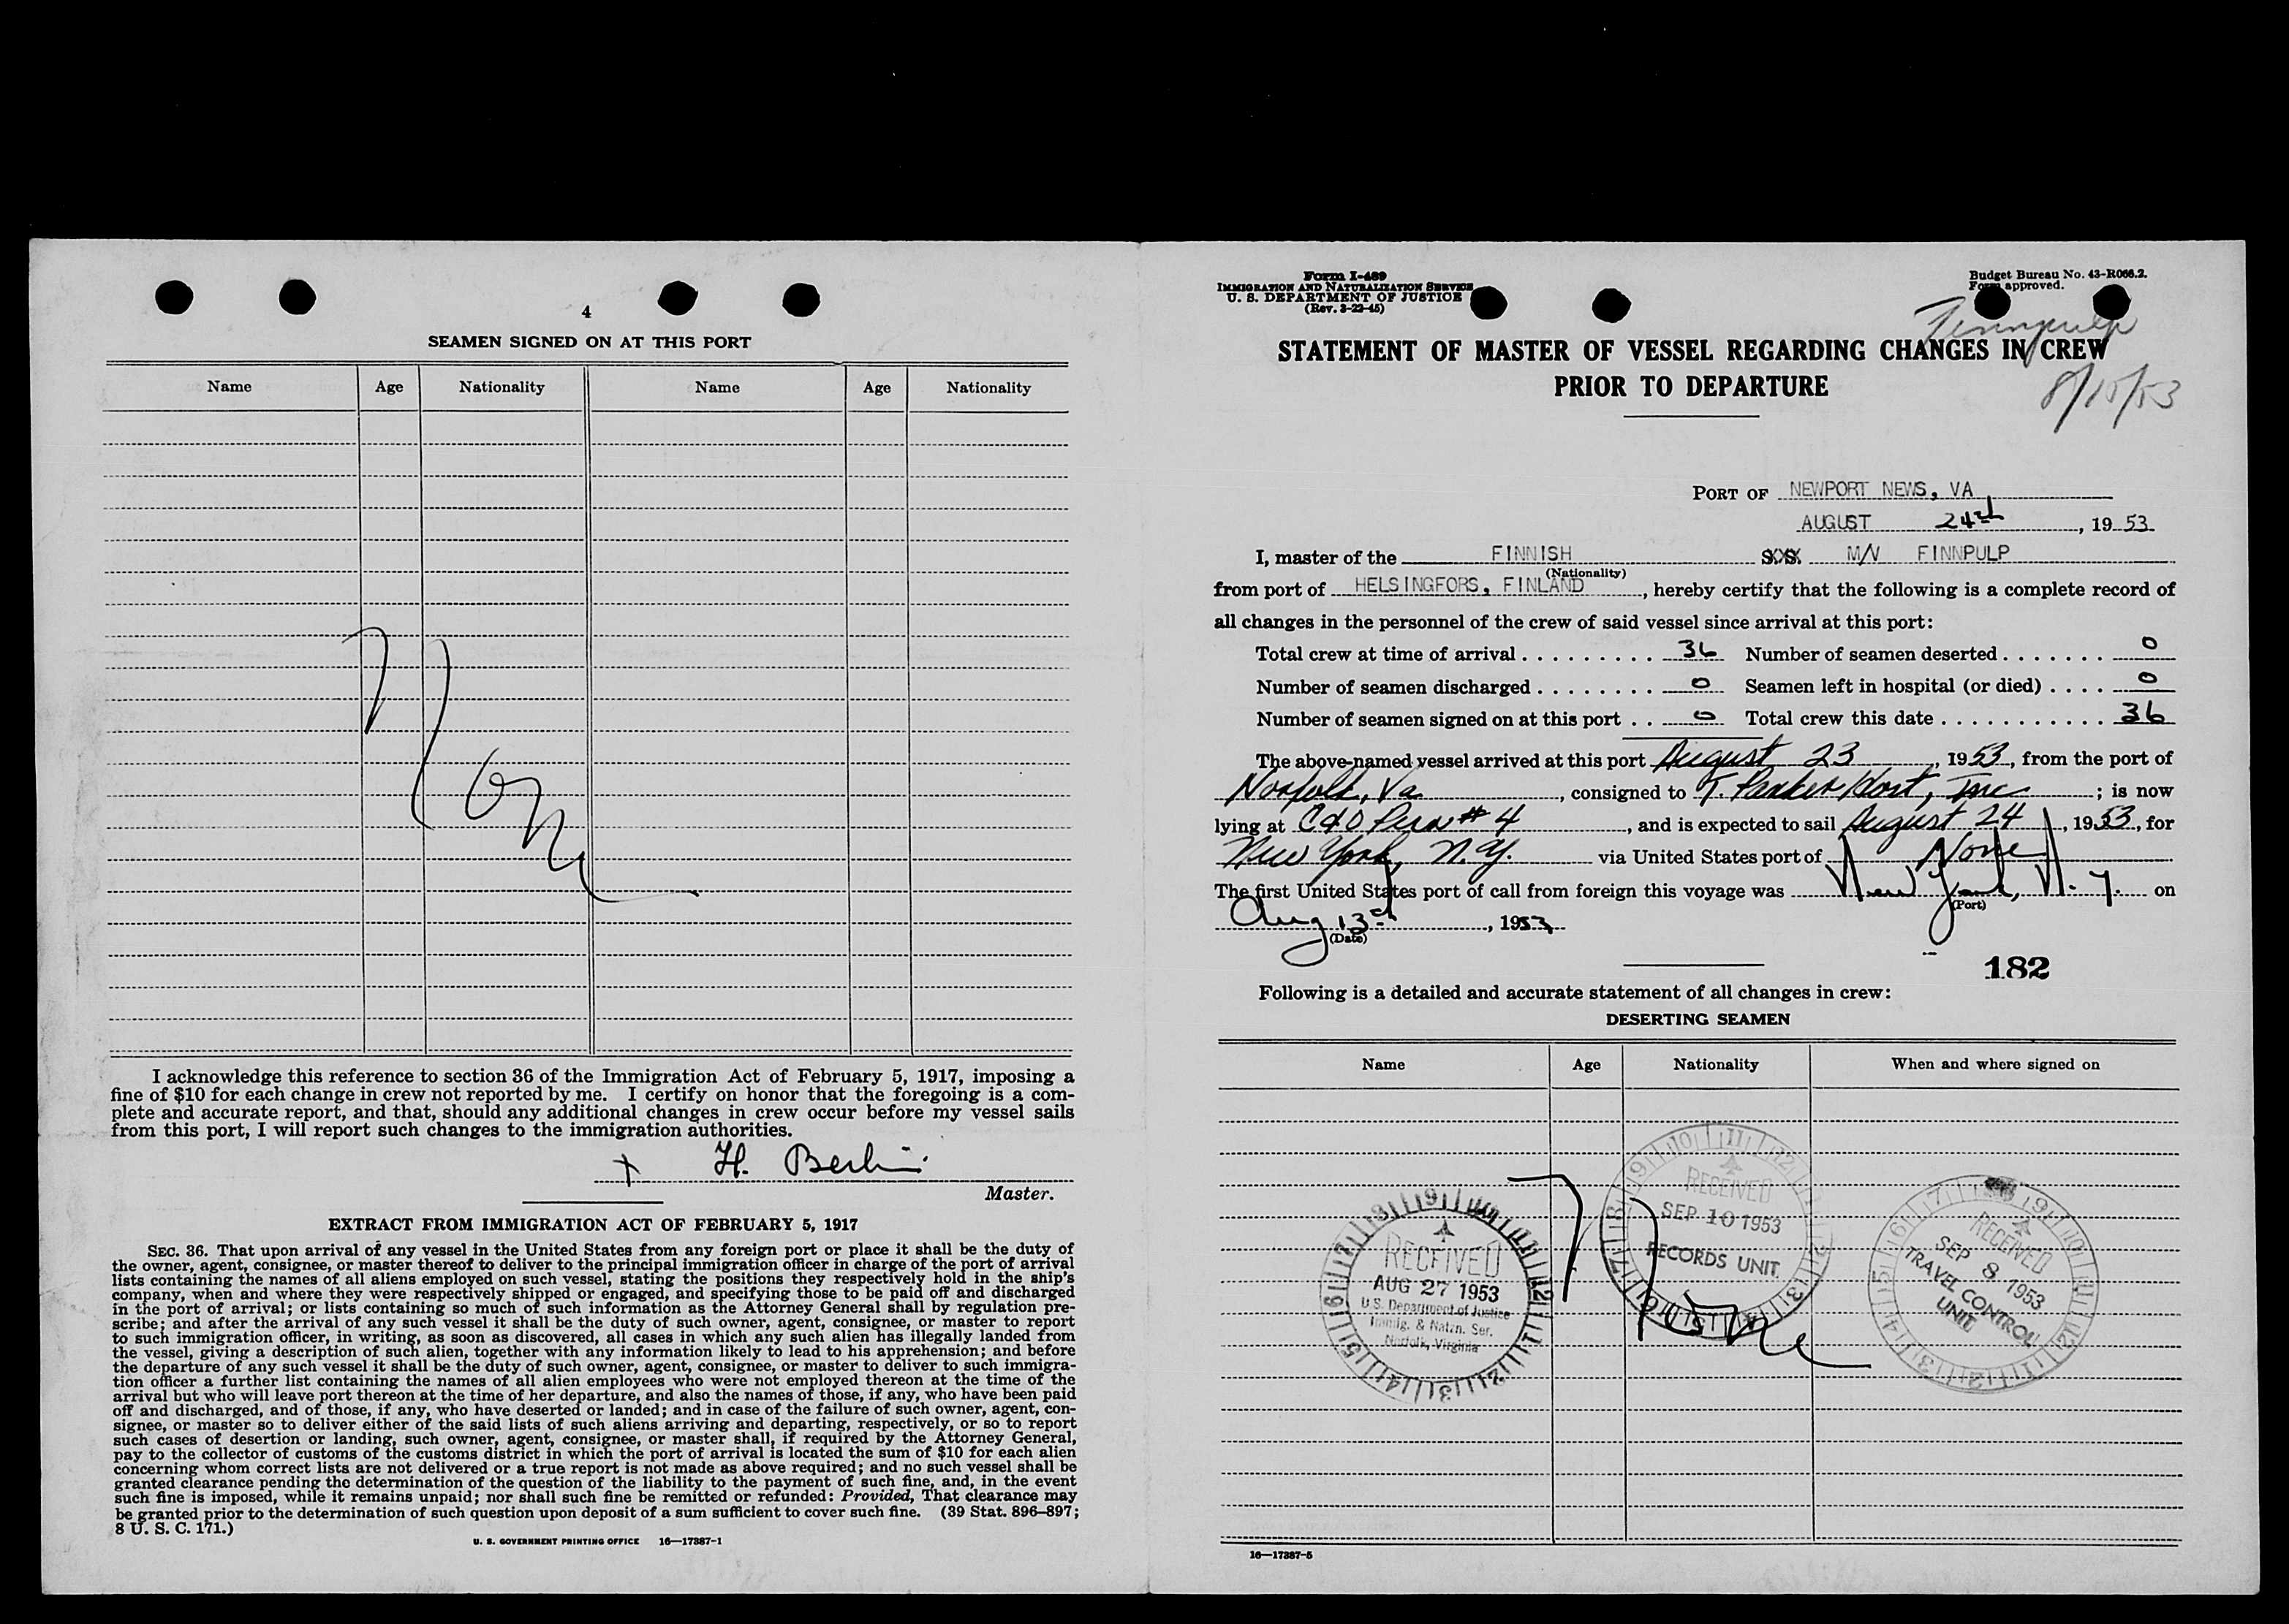 4
SEAMEN SIGNED ON AT THIS PORT
Name Age Nationality Name Age Nationality
None
I acknowledge this reference to section 36 of the Immigration Act of February 5, 1917, imposing a
fine of $10 for each change in crew not reported by me. I certify on honor that the foregoing is a com-
plete and accurate report, and that, should any additional changes in crew occur before my vessel sails
from this port, I will report such changes to the immigration authorities.
H. Berlin
Master.
EXTRACT FROM IMMIGRATION ACT OF FEBRUARY 5, 1917
SEC. 36. That upon arrival of any vessel in the United States from any foreign port or place it shall be the duty of
the owner, agent, consignee, or master thereof to deliver to the principal immigration officer in charge of the port of arrival
lists containing the names of all aliens employed on such vessel, stating the positions they respectively hold in the ship's
company, when and where they were respectively shipped or engaged, and specifying those to be paid off and discharged
in the port of arrival; or lists containing so much of such information as the Attorney General shall by regulation pre-
scribe; and after the arrival of any such vessel it shall be the duty of such owner, agent, consignee, or master to report
to such immigration officer, in writing, as soon as discovered, all cases in which any such alien has illegally landed from
the vessel, giving a description of such alien, together with any information likely to lead to his apprehension; and before
the departure of any such vessel it shall be the duty of such owner, agent, consignee, or master to deliver to such immigra-
tion officer a further list containing the names of all alien employees who were not employed thereon at the time of the
arrival but who will leave port thereon at the time of her departure, and also the names of those, if any, who have been paid
off and discharged, and of those, if any, who have deserted or landed; and in case of the failure of such owner, agent, con-
signee, or master so to deliver either of the said lists of such aliens arriving and departing, respectively, or so to report
such cases of desertion or landing, such owner, agent, consignee, or master shall, if required by the Attorney General,
pay to the collector of customs of the customs district in which the port of arrival is located the sum of $10 for each alien
concerning whom correct lists are not delivered or a true report is not made as above required; and no such vessel shall be
granted clearance pending the determination of the question of the liability to the payment of such fine, and, in the event
such fine is imposed, while it remains unpaid; nor shall such fine be remitted or refunded: Provided, That clearance may
be granted prior to the determination of such question upon deposit of a sum sufficient to cover such fine. (39 Stat. 896–897;
8 U. S. C. 171.)
U. S. GOVERNMENT PRINTING OFFICE 16—17387-1
Form I-489
IMMIGRATION AND NATURALIZATION SERVICE
U. S. DEPARTMENT OF JUSTICE
(Rev. 3-22-45)
Budget Bureau No. 43-R066.2.
Form approved.
Finnpulp
STATEMENT OF MASTER OF VESSEL REGARDING CHANGES IN CREW
PRIOR TO DEPARTURE
8/15/53
PORT OF NEWPORT NEWS, VA
AUGUST 24th, 1953
I, master of the FINNISH S.S. M/V FINNPULP
(Nationality)
from port of HELSINGFORS, FINLAND, hereby certify that the following is a complete record of
all changes in the personnel of the crew of said vessel since arrival at this port:
Total crew at time of arrival . . . . . . . . . 36 Number of seamen deserted . . . . . . . 0
Number of seamen discharged . . . . . . . . 0 Seamen left in hospital (or died) . . . . 0
Number of seamen signed on at this port . . 0 Total crew this date . . . . . . . . . . . 36
The above-named vessel arrived at this port August 23, 1953, from the port of
Norfolk, Va, consigned to T. Parker Host, Inc; is now
lying at C&O Pier #4, and is expected to sail August 24, 1953, for
New York, N.Y. via United States port of None
The first United States port of call from foreign this voyage was New York, N.Y. on
(Port)
Aug 13th, 1953
(Date)
182
Following is a detailed and accurate statement of all changes in crew:
DESERTING SEAMEN
Name Age Nationality When and where signed on
None
RECEIVED
AUG 27 1953
U.S. Department of Justice
Immig. & Natzn. Ser.
Norfolk, Virginia
RECEIVED
SEP 10 1953
RECORDS UNIT
RECEIVED
SEP 8 1953
TRAVEL CONTROL
UNIT
16—17387-5